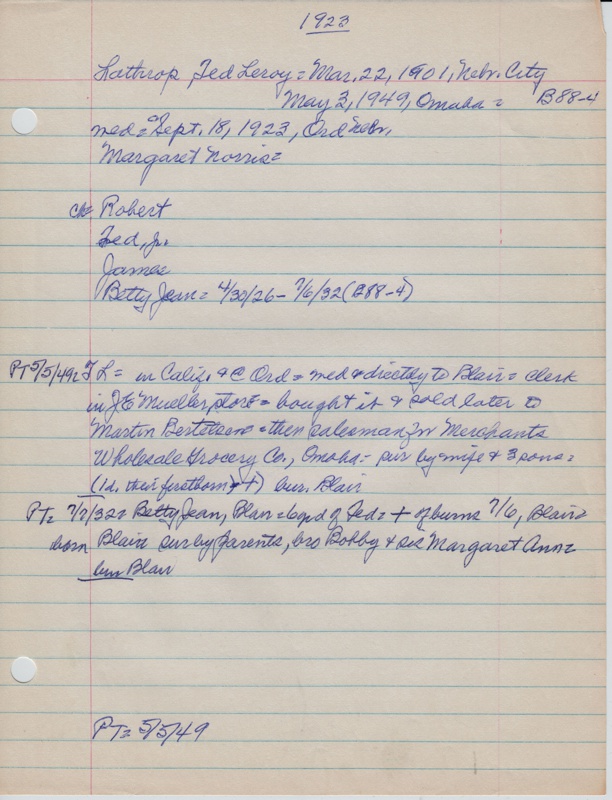 1923
Lathrop, Ted Leroy = Mar. 22, 1901, Nebr. City
May 3, 1949, Omaha = B88-4
med = Sept. 18, 1923, Ord Nebr.
Margaret Norris =
ch = Robert
Ted, Jr.
James
Betty Jean = 4/30/26 - 7/6/32 (B88-4)
PT 5/5/49 = T L = in Calif. & @ Ord = med & directly to Blair = clerk
in J E Mueller store = bought it & sold later to
Martin Bertelsen = then salesman for Merchants
Wholesale Grocery Co., Omaha = sur by wife & 3 sons =
(1 d. their firstborn +) bur. Blair
PT = 7/7/32 = Betty Jean, Blair = 6 y d of Ted = + of burns 7/6, Blair =
born Blair sur by parents, bro Bobby & sis Margaret Ann =
bur Blair
PT = 5/5/49